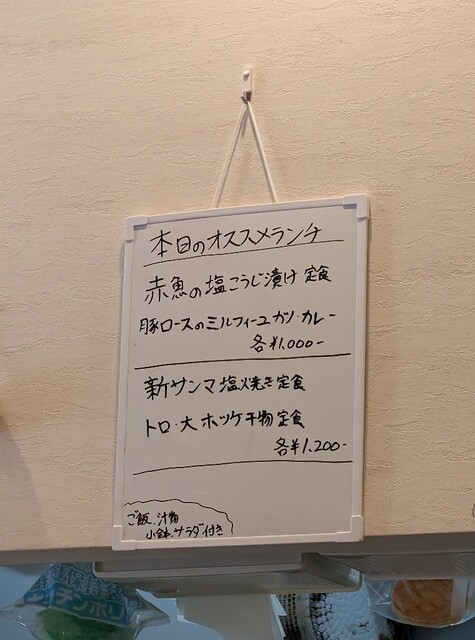 本日のオススメランチ
赤魚の塩こうじ漬け 定食
豚ロースのミルフィーユカツ・カレー
各¥1,000-
新サンマ塩焼き定食
トロ・大ホッケ干物定食
各¥1,200-
ご飯、汁物
小鉢、サラダ付き